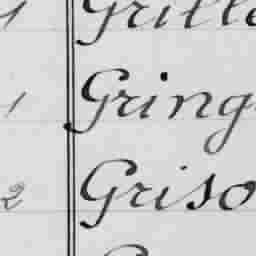 1 Grille
1 Gring
2 Griso